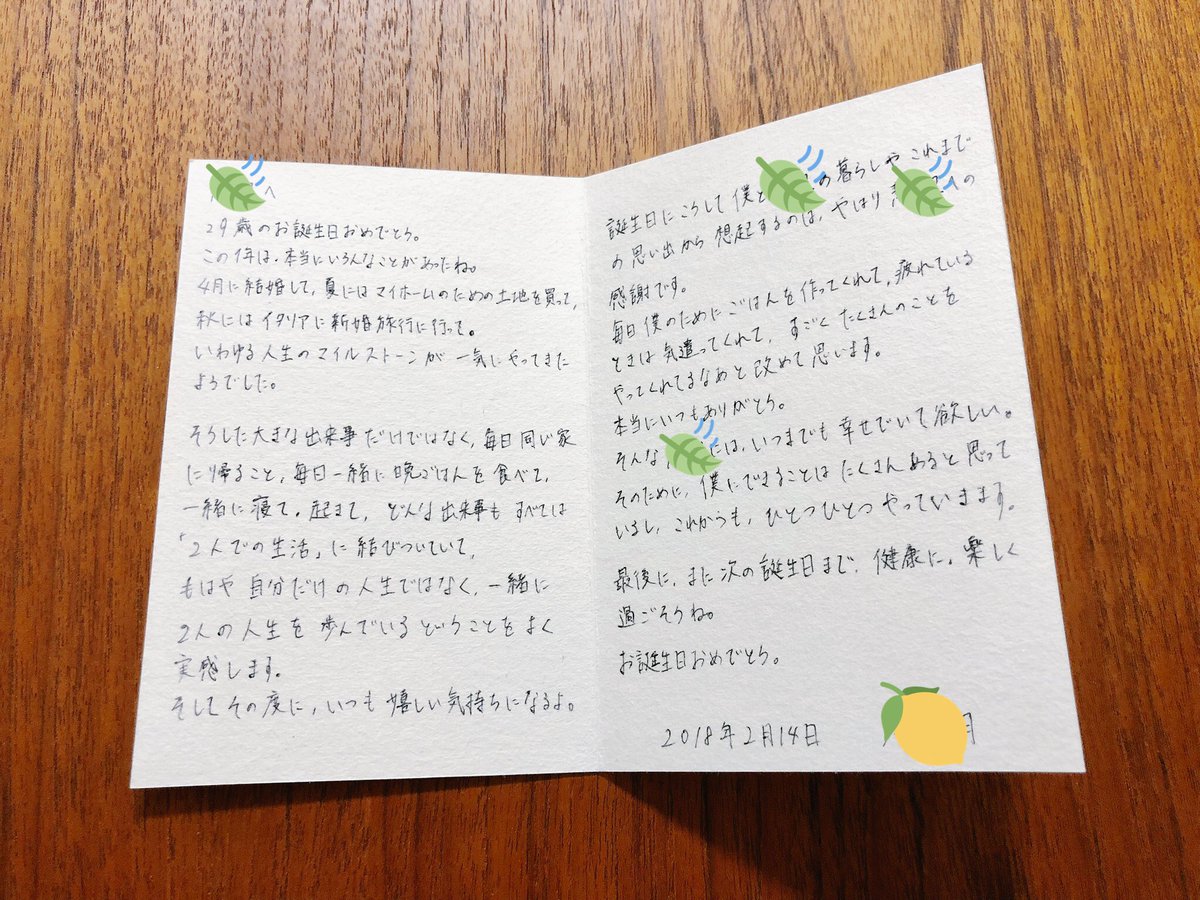 へ
29歳のお誕生日おめでとう。
この1年は、本当にいろんなことがあったね。
4月に結婚して、夏にはマイホームのための土地を買って、
秋にはイタリアに新婚旅行に行って。
いわゆる人生のマイルストーンが一気にやってきた
ようでした。
そうした大きな出来事だけではなく、毎日同じ家
に帰ること、毎日一緒に晩ごはんを食べて、
一緒に寝て。起きて、どんな出来事もすべては
「2人での生活」に結びついていて、
もはや自分だけの人生ではなく、一緒に
2人の人生を歩んでいるということをよく
実感します。
そしてその度に、いつも嬉しい気持ちになるよ。
誕生日にこうして僕と の暮らしやこれまで
の思い出から想起するのは、やはり への
感謝です。
毎日僕のためにごはんを作ってくれて、疲れている
ときは気遣ってくれて、すごくたくさんのことを
やってくれてるなあと改めて思います。
本当にいつもありがとう。
そんな には、いつまでも幸せでいて欲しい。
そのために、僕にできることはたくさんあると思って
いるし、これからも、ひとつひとつやっていきます。
最後に、また次の誕生日まで、健康に。楽しく
過ごそうね。
お誕生日おめでとう。
2018年2月14日